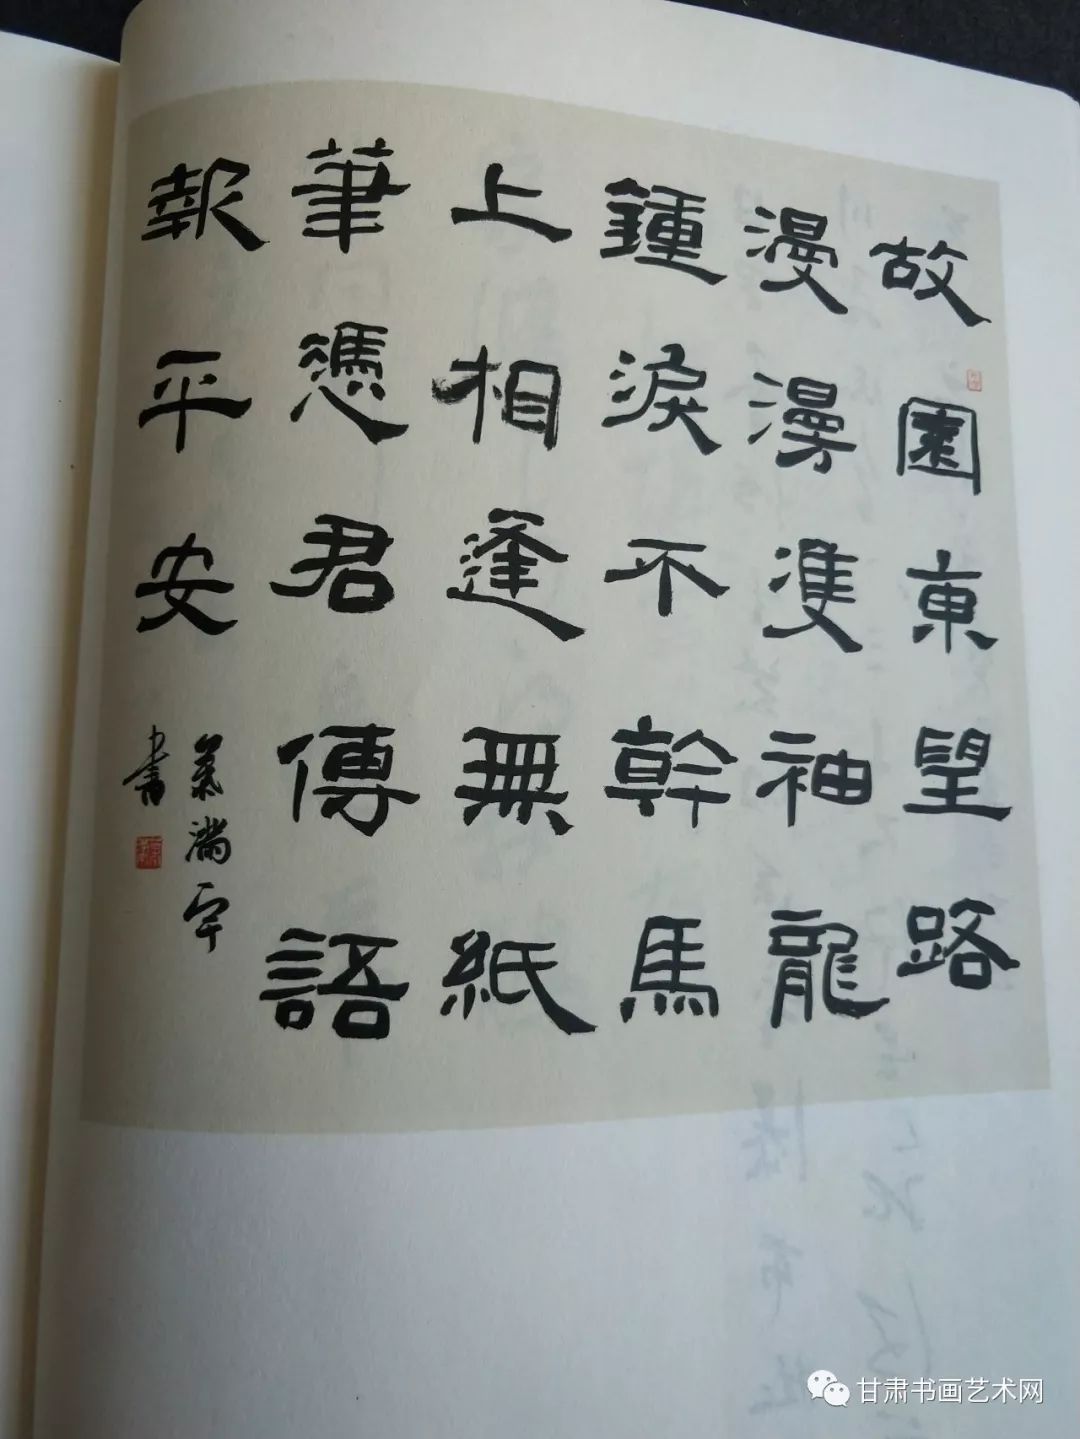 故園東望路
漫漫雙袖龍
鍾淚不幹馬
上相逢無紙
筆憑君傳語
報平安
書
甘肃书画艺术网